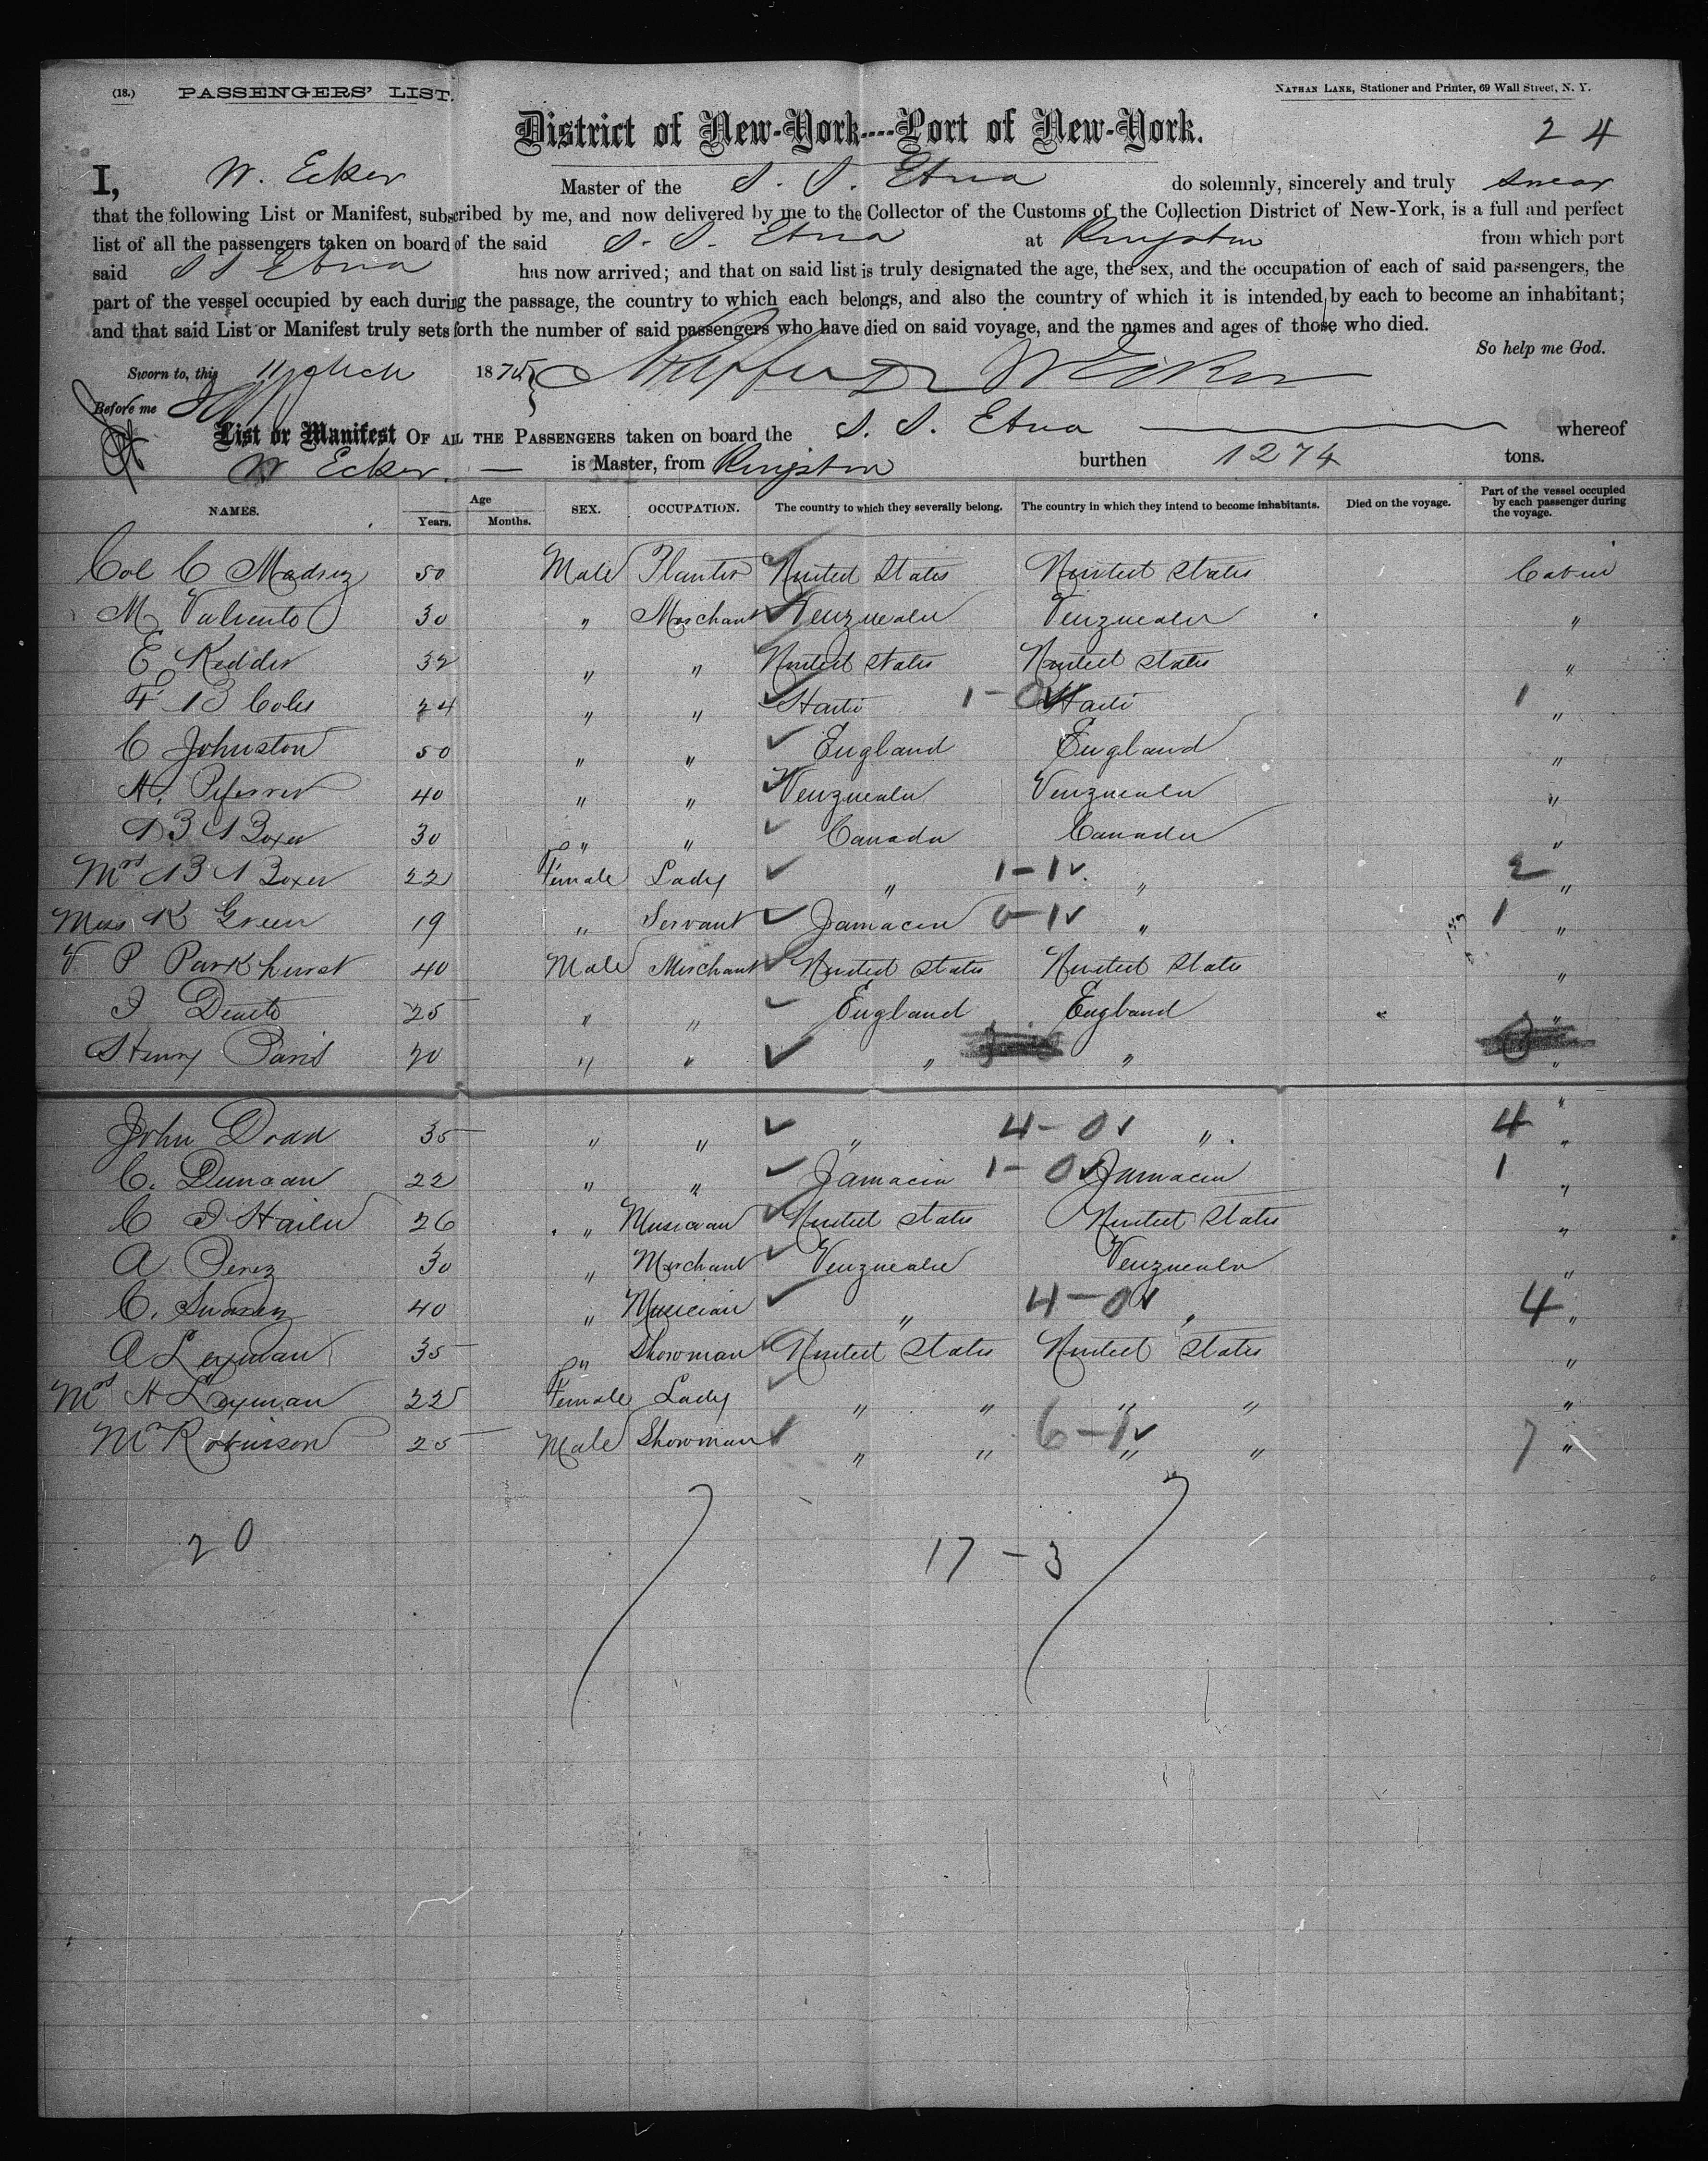 (18.) PASSENGERS' LIST. NATHAN LANE, Stationer and Printer, 69 Wall Street, N. Y.
District of New-York----Port of New-York. 24
I, W. Ecker Master of the S. S. Etna do solemnly, sincerely and truly swear
that the following List or Manifest, subscribed by me, and now delivered by me to the Collector of the Customs of the Collection District of New-York, is a full and perfect
list of all the passengers taken on board of the said S. S. Etna at Kingston from which port
said S S Etna has now arrived; and that on said list is truly designated the age, the sex, and the occupation of each of said passengers, the
part of the vessel occupied by each during the passage, the country to which each belongs, and also the country of which it is intended by each to become an inhabitant;
and that said List or Manifest truly sets forth the number of said passengers who have died on said voyage, and the names and ages of those who died.
So help me God.
Sworn to, this 11 Mch 1875 W Ecker
Before me
List or Manifest OF ALL THE PASSENGERS taken on board the S. S. Etna whereof
W Ecker is Master, from Kingston burthen 1274 tons.
NAMES. Age Years. Months. SEX. OCCUPATION. The country to which they severally belong. The country in which they intend to become inhabitants. Died on the voyage. Part of the vessel occupied by each passenger during the voyage.
Col C Madriz 50 Male Planter United States United States Cabin
M Valiento 30 " Merchant Venzuealu Venzuealu "
E Kedder 32 " " United States United States "
F B Coles 24 " " Haiti 1-0 Haiti 1 "
C Johnston 50 " " England England "
H. Piferrer 40 " " Venzuealu Venzuealu "
B Boxer 30 " " Canada Canada "
Mrs B Boxer 22 Female Lady " 1-1 " 2 "
Miss K Green 19 " Servant Jamacia 0-1 " 1 "
V P Parkhurst 40 Male Merchant United States United States "
25 " " England England "
Henry Paris 20 " " " " "
John Dodd 35 " " " 4-0 " 4 "
C. Duncan 22 " " Jamacia 1-0 Jamacia 1 "
C J Hailer 26 " Musician United States United States "
A Perez 30 " Merchant Venzuealu Venzuealu "
C. Suarez 40 " Musician " 4-0 " 4 "
A Layman 35 " Showman United States United States "
Mrs H Layman 22 Female Lady " " " " "
Mr Robinson 25 Male Showman " " 6-1 " " 7 "
20 17-3